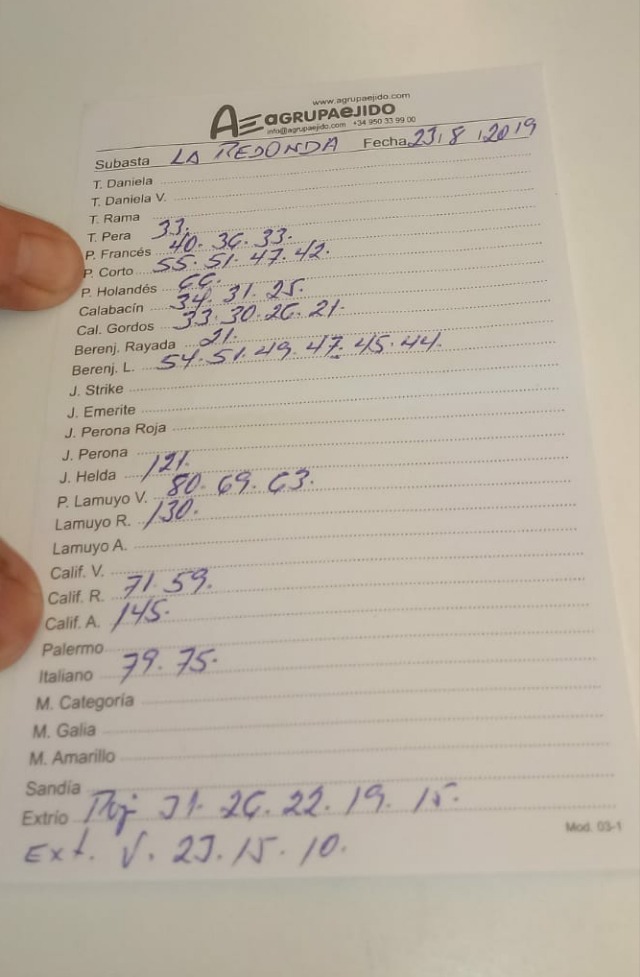 www.agrupaejido.com
AGRUPAEJIDO
info@agrupaejido.com +34 950 33 99 00
Subasta LA REDONDA Fecha 23/8/2019
T. Daniela
T. Daniela V.
T. Rama
T. Pera 33.
P. Francés 40. 36. 33.
P. Corto 55. 51. 47. 42.
P. Holandés 66.
Calabacín 34. 31. 25.
Cal. Gordos 33. 30. 26. 21.
Berenj. Rayada 21.
Berenj. L. 54. 51. 49. 47. 45. 44.
J. Strike
J. Emerite
J. Perona Roja
J. Perona
J. Helda 121.
P. Lamuyo V. 80. 69. 63.
Lamuyo R. 130.
Lamuyo A.
Calif. V.
Calif. R. 71. 59.
Calif. A. 145.
Palermo
Italiano 79. 75.
M. Categoría
M. Galia
M. Amarillo
Sandía
Extrío Roj 31. 26. 22. 19. 15.
Mod. 03-1
Ext. V. 23. 15. 10.